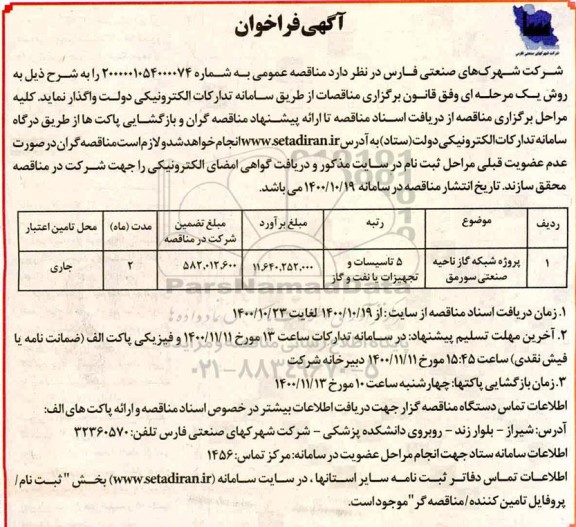 آگهی فراخوان
شرکت شهرک‌های صنعتی فارس
شرکت شهرک‌های صنعتی فارس در نظر دارد مناقصه عمومی به شماره ۲۰۰۰۰۰۱۰۵۴۰۰۰۰۷۴ را به شرح ذیل به
روش یک مرحله‌ای وفق قانون برگزاری مناقصات از طریق سامانه تدارکات الکترونیکی دولت واگذار نماید. کلیه
مراحل برگزاری مناقصه از دریافت اسناد مناقصه تا ارائه پیشنهاد مناقصه گران و بازگشایی پاکت ها از طریق درگاه
سامانه تدارکات الکترونیکی دولت (ستاد) به آدرس www.setadiran.ir انجام خواهد شد و لازم است مناقصه گران در صورت
عدم عضویت قبلی مراحل ثبت نام در سایت مذکور و دریافت گواهی امضای الکترونیکی را جهت شرکت در مناقصه
محقق سازند. تاریخ انتشار مناقصه در سامانه ۱۴۰۰/۱۰/۱۹ می باشد.
ردیف موضوع رتبه مبلغ برآورد مبلغ تضمین شرکت در مناقصه مدت (ماه) محل تامین اعتبار
۱ پروژه شبکه گاز ناحیه صنعتی سورمق ۵ تاسیسات و تجهیزات یا نفت و گاز ۱۱,۶۴۰,۲۵۲,۰۰۰ ۵۸۲,۰۱۲,۶۰۰ ۲ جاری
ParsNamadData
۱. زمان دریافت اسناد مناقصه از سایت: از ۱۴۰۰/۱۰/۱۹ لغایت ۱۴۰۰/۱۰/۲۳
۲. آخرین مهلت تسلیم پیشنهاد: در سامانه تدارکات ساعت ۱۳ مورخ ۱۴۰۰/۱۱/۱۱ و فیزیکی پاکت الف (ضمانت نامه یا
فیش نقدی) ساعت ۱۵:۴۵ مورخ ۱۴۰۰/۱۱/۱۱ دبیرخانه شرکت
۰۲۱-۸۸۳۴۹۶۷۰-۵
۳. زمان بازگشایی پاکتها: چهارشنبه ساعت ۱۰ مورخ ۱۴۰۰/۱۱/۱۳
اطلاعات تماس دستگاه مناقصه گزار جهت دریافت اطلاعات بیشتر در خصوص اسناد مناقصه و ارائه پاکت های الف:
آدرس: شیراز - بلوار زند - روبروی دانشکده پزشکی - شرکت شهرکهای صنعتی فارس تلفن: ۳۲۳۶۰۵۷۰
اطلاعات سامانه ستاد جهت انجام مراحل عضویت در سامانه: مرکز تماس: ۱۴۵۶
اطلاعات تماس دفاتر ثبت نامه سایر استانها، در سایت سامانه (www.setadiran.ir) بخش "ثبت نام/
پروفایل تامین کننده/مناقصه گر" موجود است.